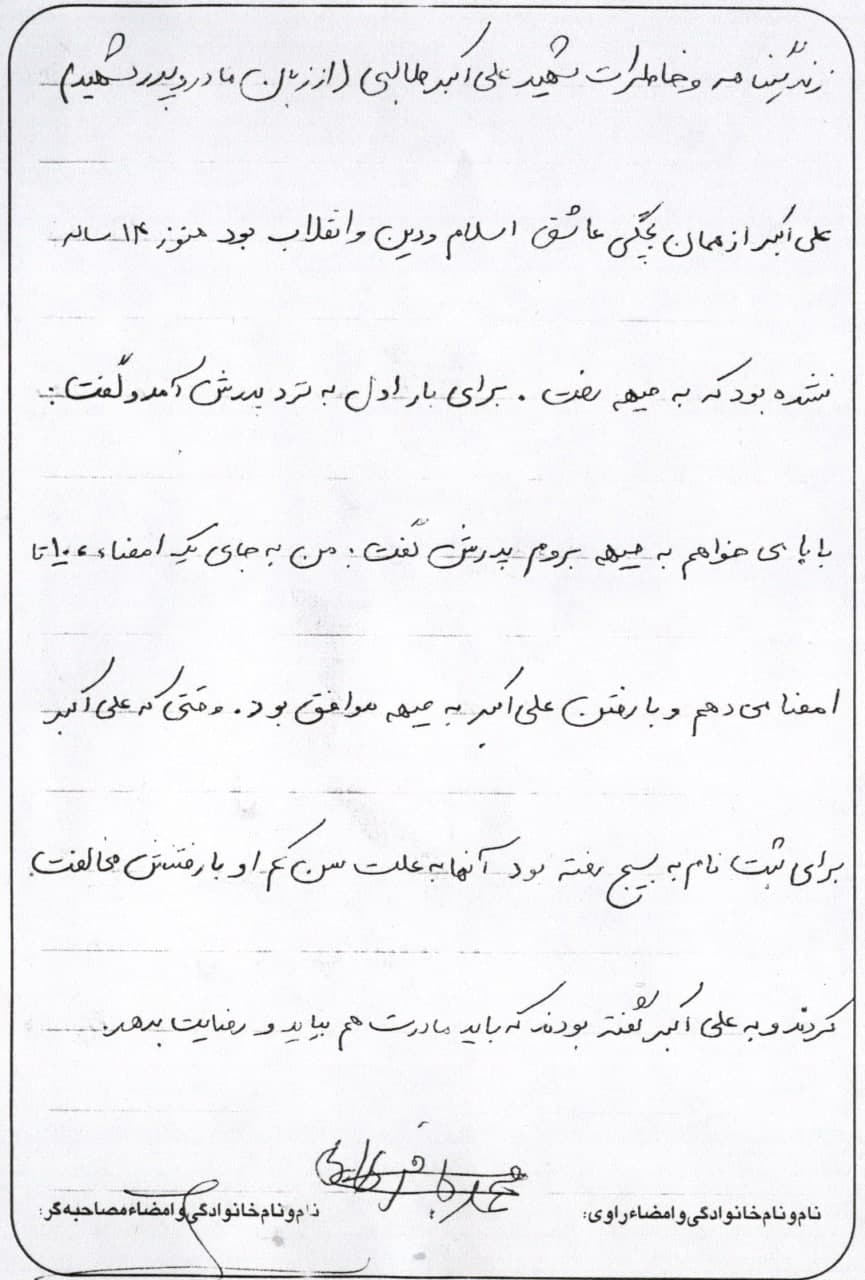 زندگینامه و خاطرات شهید علی اکبر طالبی (از زبان مادر و پدر شهید)
علی اکبر از همان بچگی عاشق اسلام و دین و انقلاب بود هنوز ۱۴ ساله
نشده بود که به جبهه رفت . برای بار اول به نزد پدرش آمد و گفت :
بابا می خواهم به جبهه بروم پدرش گفت : من به جای یک امضاء ، ۱۰ تا
امضا می دهم و با رفتن علی اکبر به جبهه موافق بود . وقتی که علی اکبر
برای ثبت نام به بسیج رفته بود آنها به علت سن کم او با رفتنش مخالفت
کردند و به علی اکبر گفته بودند که باید مادرت هم بیاید و رضایت بدهد .
محمد باقر طالبی
نام و نام خانوادگی و امضاء راوی: نام و نام خانوادگی و امضاء مصاحبه گر: